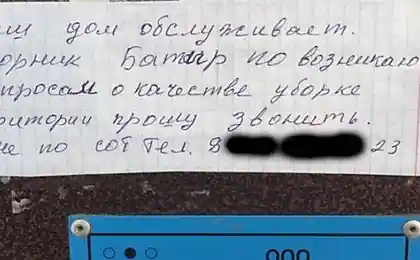 ш дом обслуживает.
орник Батыр по возникаю
просам о качестве уборке
ритории прошу звонить.
не по сот тел. 8 23
ООО